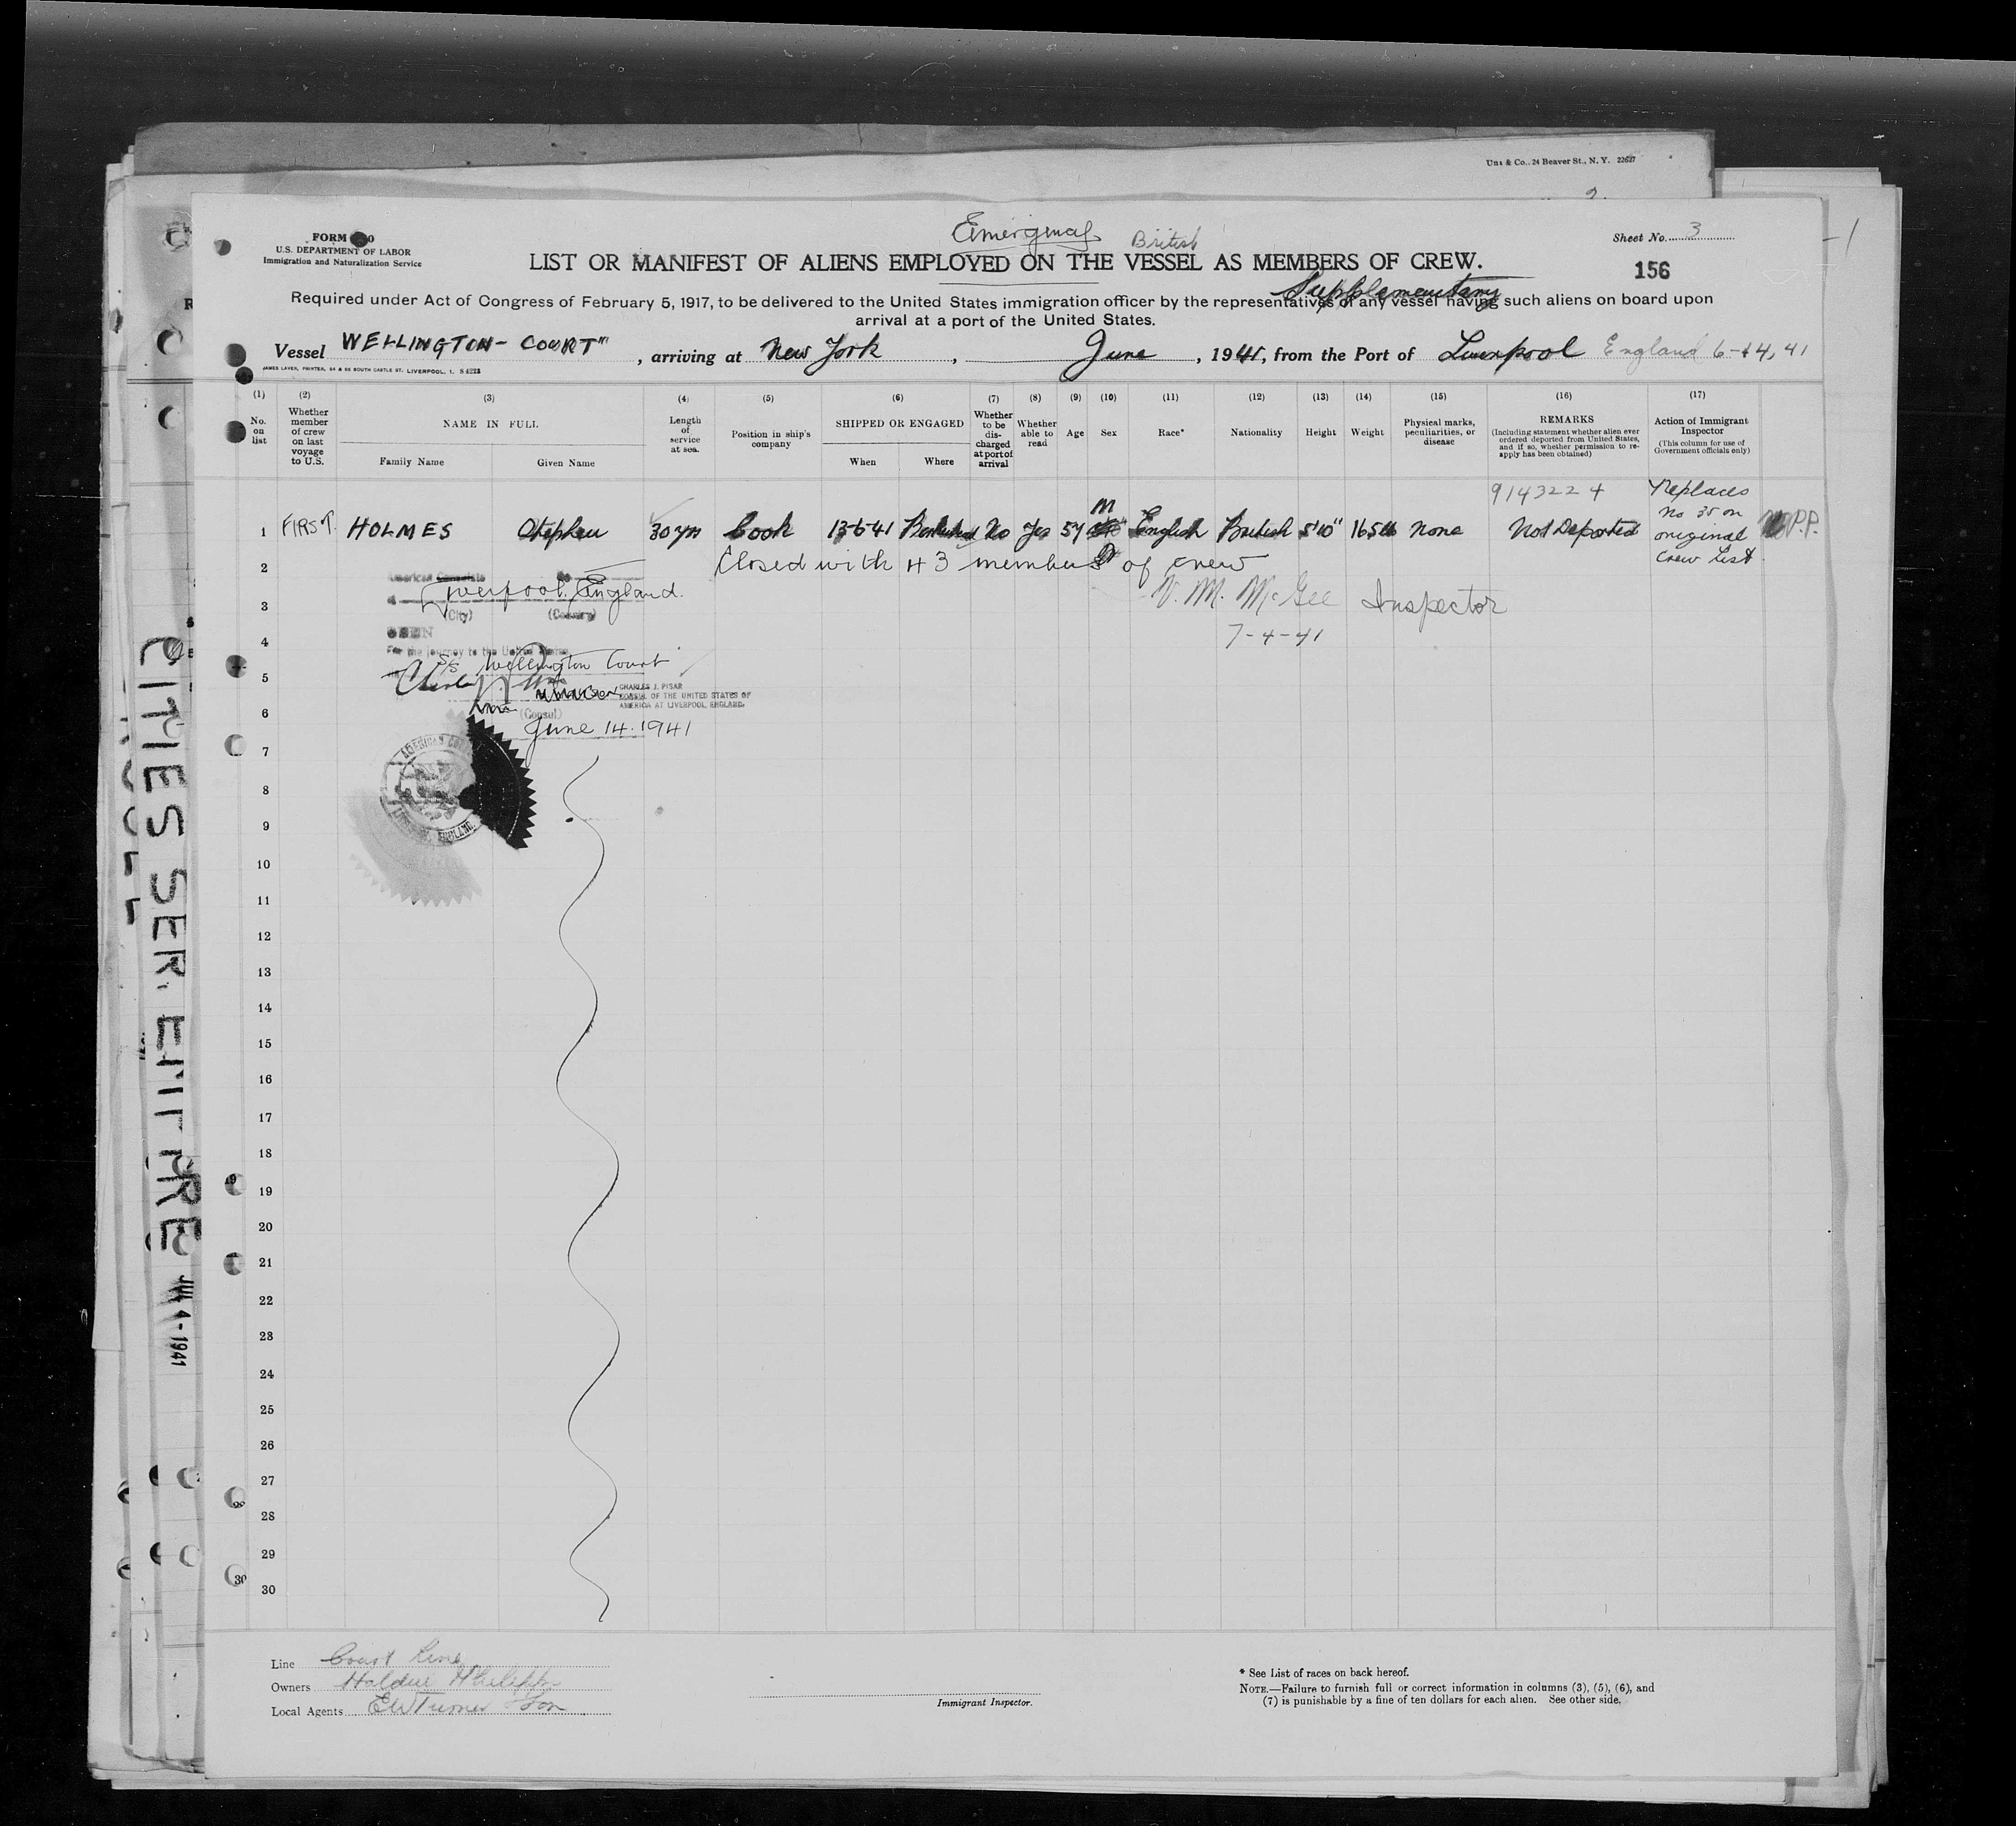 Co., 24 Beaver St., N. Y. 22627
FORM
U.S. DEPARTMENT OF LABOR
Immigration and Naturalization Service
British
Sheet No. 3
LIST OR MANIFEST OF ALIENS EMPLOYED ON THE VESSEL AS MEMBERS OF CREW.
156
Supplementary
Required under Act of Congress of February 5, 1917, to be delivered to the United States immigration officer by the representatives of any vessel having such aliens on board upon
arrival at a port of the United States.
Vessel WELLINGTON-COURT", arriving at New York, June, 1941, from the Port of Liverpool England 6-14, 41
JAMES LAVER, PRINTER, 64 & 66 SOUTH CASTLE ST. LIVERPOOL, 1.
(1) (2) (3) (4) (5) (6) (7) (8) (9) (10) (11) (12) (13) (14) (15) (16) (17)
No. on list
Whether member of crew on last voyage to U.S.
NAME IN FULL
Family Name Given Name
Length of service at sea.
Position in ship's company
SHIPPED OR ENGAGED
When Where
Whether to be discharged at port of arrival
Whether able to read
Age
Sex
Race*
Nationality
Height
Weight
Physical marks, peculiarities, or disease
REMARKS
(Including statement whether alien ever ordered deported from United States, and if so, whether permission to re-apply has been obtained)
Action of Immigrant Inspector
(This column for use of Government officials only)
1 FIRST. HOLMES Stephen 30 yrs Cook 13-6-41 No Yes 57 M English British 5'10" 165 lb None Not Deported
9143224
Replaces
No 35 on
original
Crew List.
P.P.
2 Closed with 43 members of crew
American Consulate
Liverpool, England.
(City) (Country)
3 V. M. McGee Inspector
SEEN
4 7-4-41
For the journey to the United States
S/S Wellington Court
5
CHARLES J. PISAR
CONSUL OF THE UNITED STATES OF
AMERICA AT LIVERPOOL, ENGLAND.
6 (Consul)
June 14. 1941
7
8
9
10
11
12
13
14
15
16
17
18
19
20
21
22
23
24
25
26
27
28
29
30
Line Court Line
Owners Haldin
Local Agents E W Turner & Son
Immigrant Inspector.
* See List of races on back hereof.
NOTE.—Failure to furnish full or correct information in columns (3), (5), (6), and
(7) is punishable by a fine of ten dollars for each alien. See other side.
CITIES SER.
4-1941